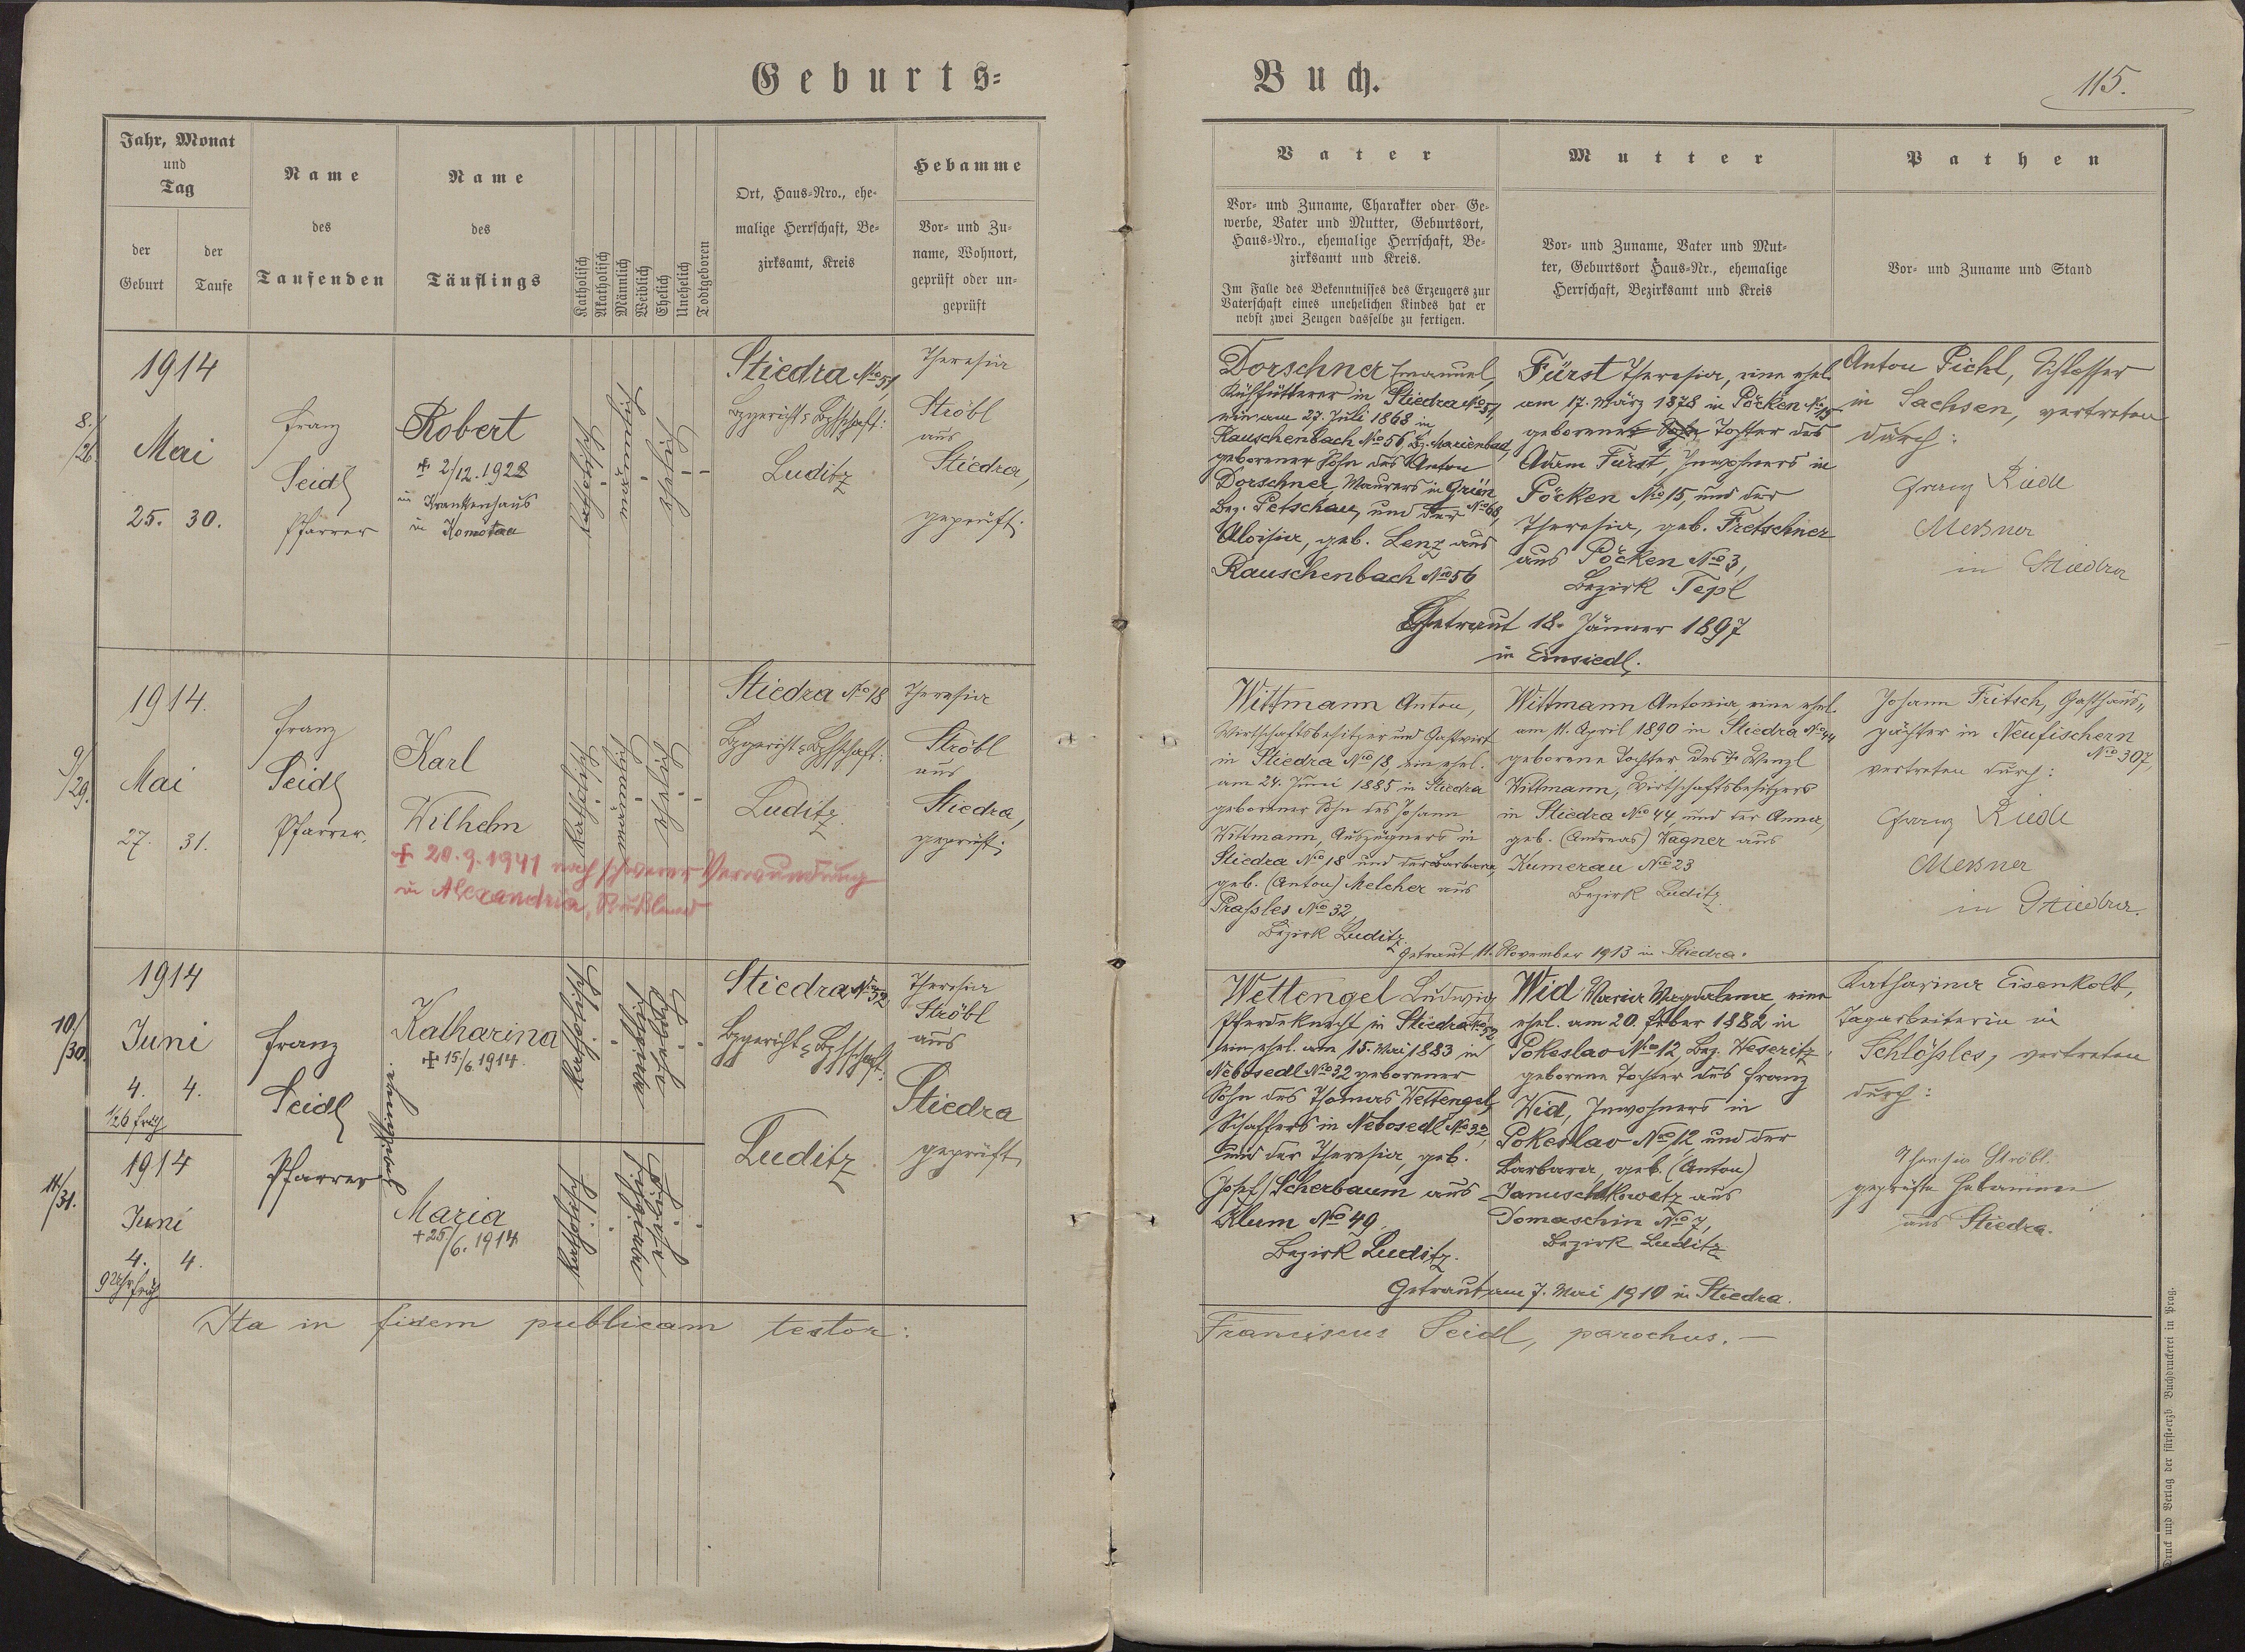 Geburts=
Buch.
115.
Jahr, Monat
und
Tag
der
Geburt
der
Taufe
Name
des
Taufenden
Name
des
Täuflings
Katholisch
Akatholisch
Männlich
Weiblich
Ehelich
Unehelich
Todtgeboren
Ort, Haus=Nro., ehe=
malige Herrschaft, Be=
zirksamt, Kreis
Hebamme
Vor= und Zu=
name, Wohnort,
geprüft oder un=
geprüft
Vater
Vor= und Zuname, Charakter oder Ge=
werbe, Vater und Mutter, Geburtsort,
Haus=Nro., ehemalige Herrschaft, Be=
zirksamt und Kreis.
Im Falle des Bekenntnisses des Erzeugers zur
Vaterschaft eines unehelichen Kindes hat er
nebst zwei Zeugen dasselbe zu fertigen.
Mutter
Vor= und Zuname, Vater und Mut=
ter, Geburtsort Haus=Nr., ehemalige
Herrschaft, Bezirksamt und Kreis
Pathen
Vor= und Zuname und Stand
8./26.
1914
Mai
25. 30.
Franz
Seidl
Pfarrer
Robert
+ 2/12. 1928
im Krankenhaus
in Komotau
katholisch
männlich
ehelich
Stiedra No 51,
Bzgericht & Bzhptschaft:
Luditz
Theresia
Ströbl
aus
Stiedra,
geprüft.
Dorschner Emanuel,
Kuhfütterer in Stiedra No 51,
am 27. Juli 1868 in
Rauschenbach No 56, Bz. Marienbad,
geborener Sohn des Anton
Dorschner, Maurers in Grün
No 68,
Bez. Petschau, und der
Aloisia, geb. Lenz aus
Rauschenbach No 56
Fürst Theresia, eine ehel.
am 17. März 1878 in Pöcken No 15
geborene Sohn Tochter des
Adam Fürst, Inwohners in
Pöcken No 15, und der
Theresia, geb. Fretschner
aus Pöcken No 3,
Bezirk Tepl
Getraut 18. Jänner 1897
in Einsiedl.
Anton Pichl, Schlosser
in Sachsen, vertreten
durch:
Franz Riedl
Meßner
in Stiedra
9/29.
1914.
Mai
27. 31.
Franz
Seidl
Pfarrer.
Karl
Wilhelm
+ 20.9.1941 nach schwerer Verwundung
in Alexandria, Rußland
katholisch
männlich
ehelich
Stiedra No 18
Bzgericht & Bzhptschaft:
Luditz.
Theresia
Ströbl
aus
Stiedra,
geprüft.
Wittmann Anton,
Wirtschaftsbesitzer und Gastwirt
in Stiedra No 18, ein ehel.
am 24. Juni 1885 in Stiedra
geborener Sohn des Johann
Wittmann, Auszüglers in
Stiedra No 18 und der Barbara,
geb. (Anton) Melcher aus
Prassles No 32,
Bezirk Luditz.
Wittmann Antonia, eine ehel.
am 11. April 1890 in Stiedra No 44
geborene Tochter des + Wenzl
Wittmann, Wirtschaftsbesitzers
in Stiedra No 44 und der Anna,
geb. (Andreas) Wagner aus
Kumerau No 23
Bezirk Luditz.
Getraut 11. November 1913 in Stiedra.
Johann Fritsch, Gasthaus=
pächter in Neufischern
No 307,
vertreten durch:
Franz Riedl
Meßner
in Stiedra.
10/30.
1914
Juni
4. 4.
1/26 früh
Franz
Seidl
Pfarrer
Katharina
+ 15./6. 1914.
katholisch
weiblich
ehelich
Stiedra No 52
Bzgericht & Bzhptschaft:
Luditz
Theresia
Ströbl
aus
Stiedra
geprüft,
11./31.
1914
Juni
4. 4.
9 Uhr früh
Zwillinge.
Maria
+ 25./6. 1914
katholisch
weiblich
ehelich
Wettengel Ludwig
Pferdeknecht in Stiedra No 52,
ein ehel. am 15. Mai 1883 in
Nebosedl No 32 geborener
Sohn des Thomas Wettengel,
Schaffers in Nebosedl No 32,
und der Theresia, geb.
(Josef) Scherbaum aus
Klum No 49,
Bezirk Luditz.
Wid Maria Magdalena, eine
ehel. am 20. Feber 1882 in
Pokeslav No 12, Bez. Weseritz,
geborene Tochter des Franz
Wid, Inwohners in
Pokeslav No 12 und der
Barbara, geb. (Anton)
Januschkowetz aus
Domaschin No 7,
Bezirk Luditz
Getraut am 7. Mai 1910 in Stiedra.
Katharina Eisenkolb,
Tagarbeiterin in
Schlössles, vertreten
durch:
Theresia Ströbl.
geprüfte Hebamme
aus Stiedra.
Ita in fidem publicam testor:
Franciscus Seidl, parochus. —
Druck und Verlag der fürst=erzb. Buchdruckerei in Prag.